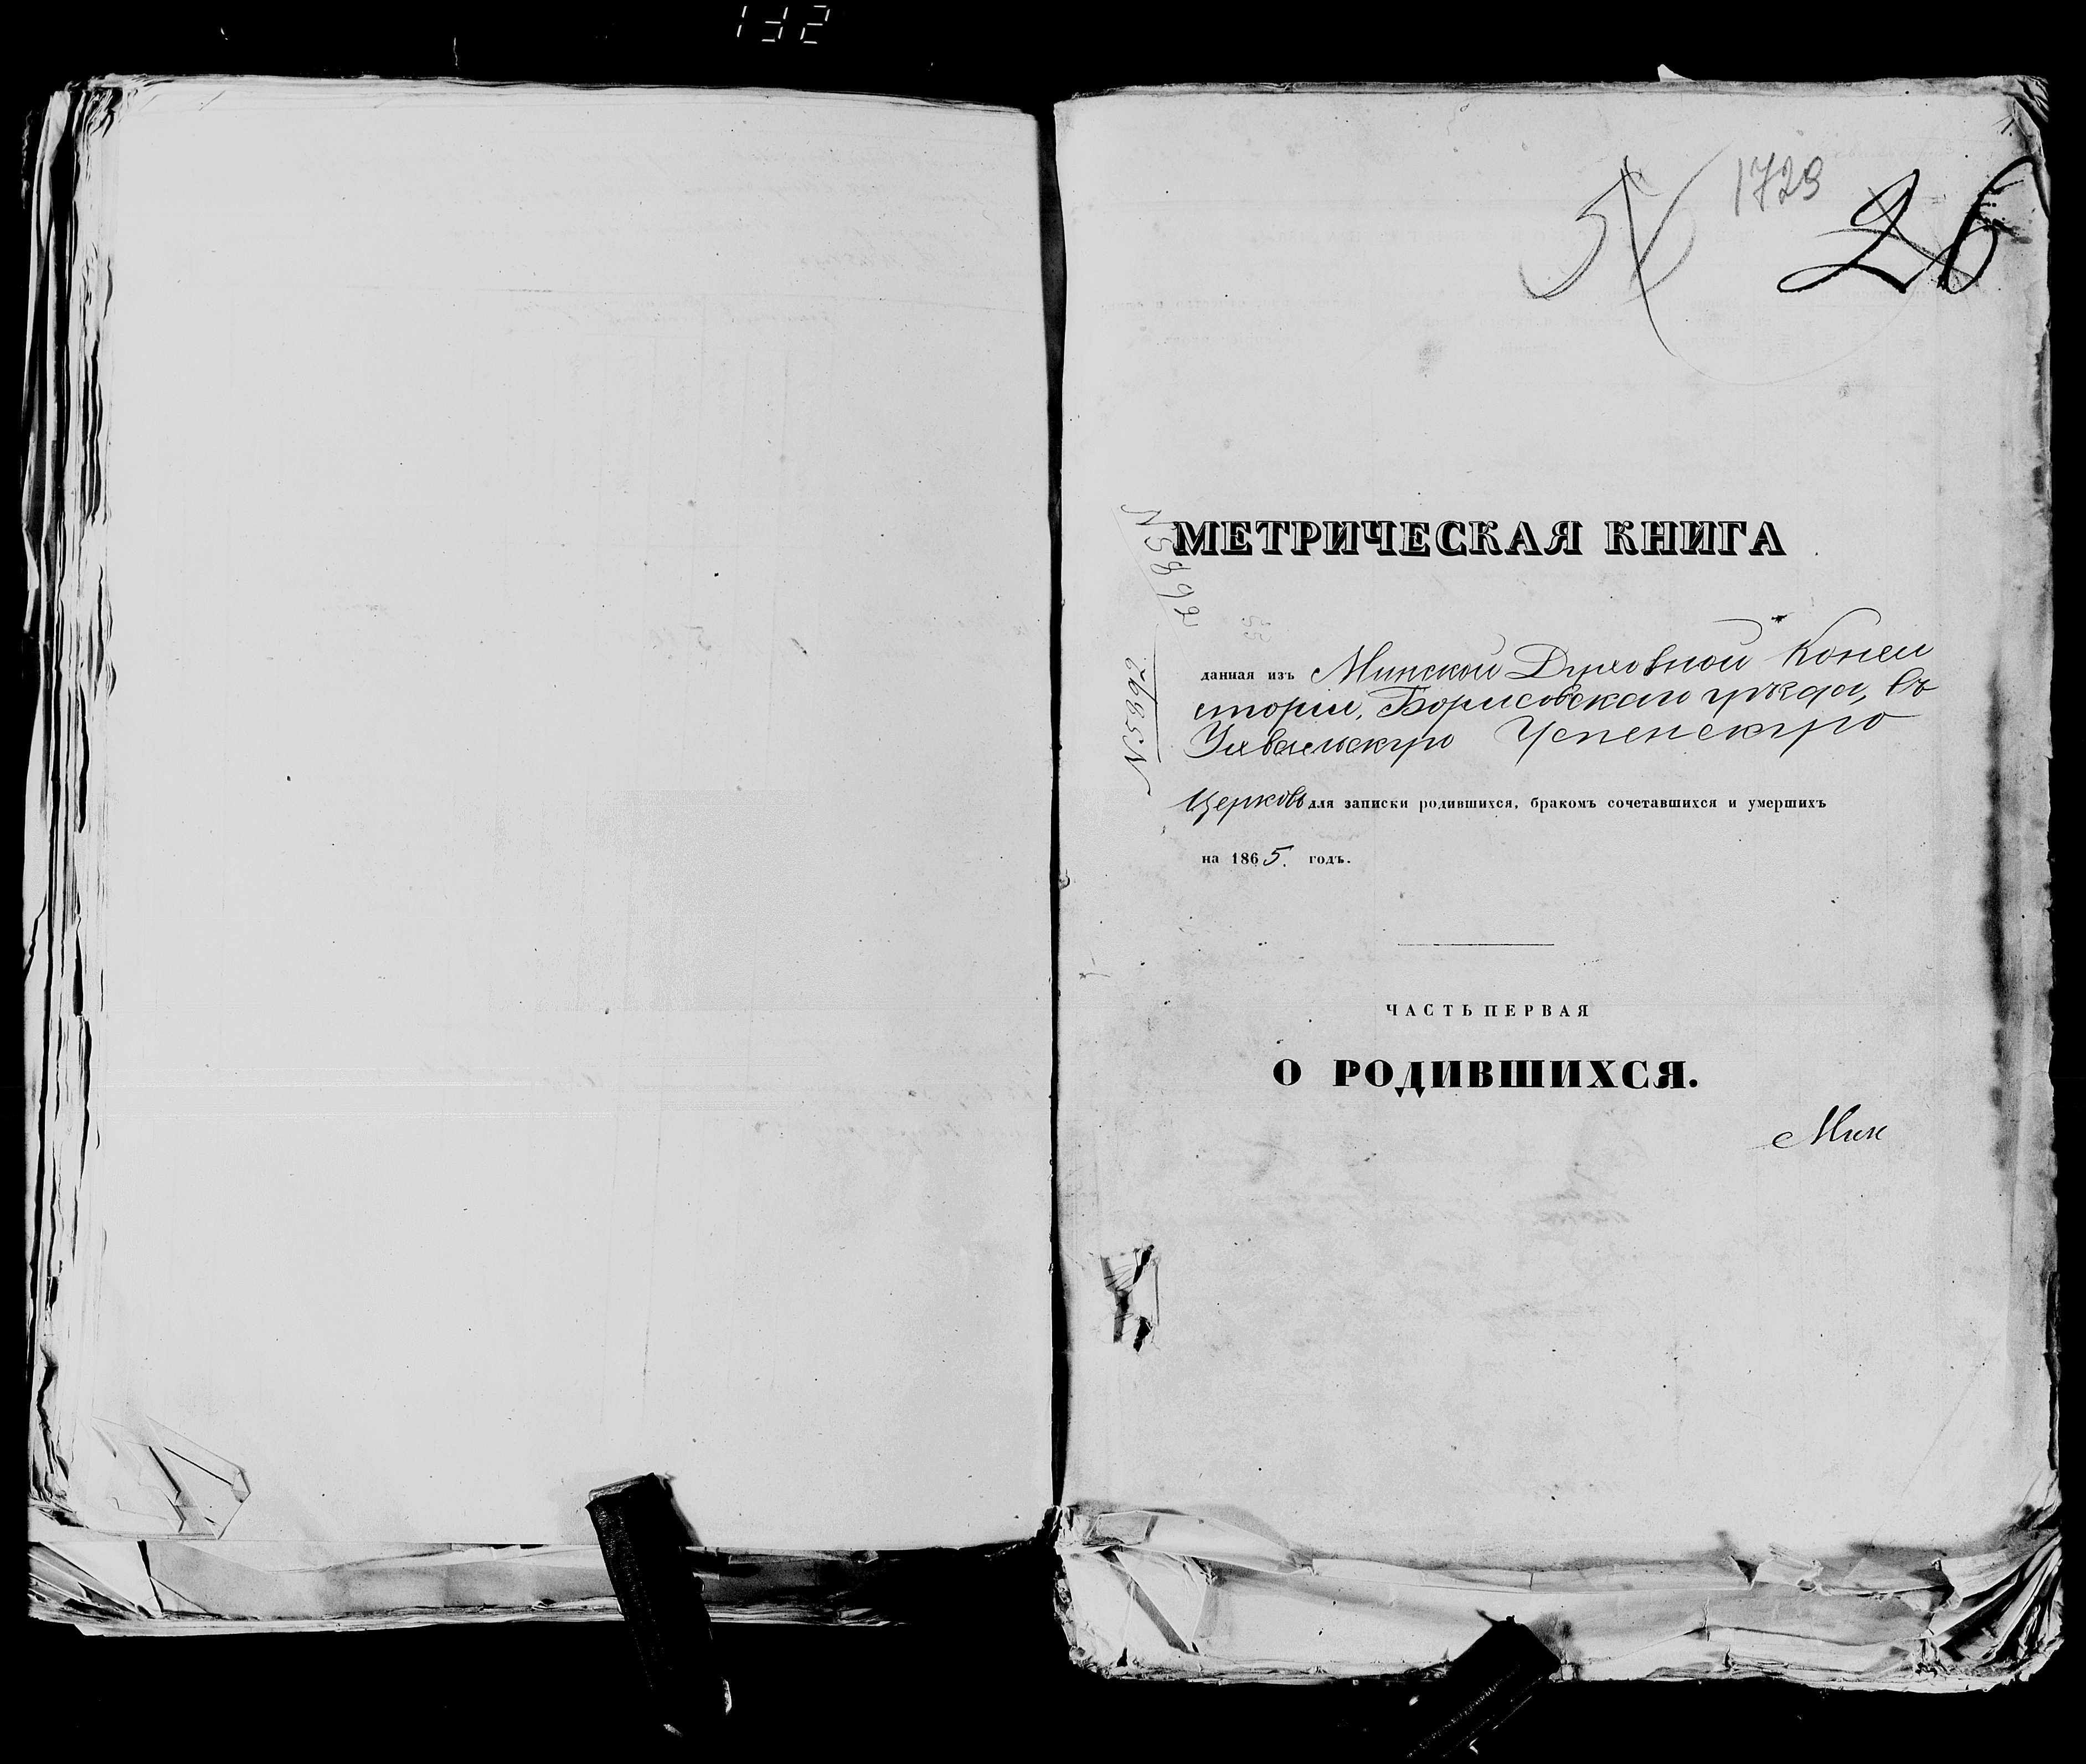 132
1729
26
МЕТРИЧЕСКАЯ КНИГА
N 5892
N 5892.
данная изъ Минской Духовной Конси
сторіи, Борисовскаго уѣзда, въ
Ухвальскую Успенскую
Церковь для записки родившихся, бракомъ сочетавшихся и умершихъ
на 1865. годъ.
ЧАСТЬ ПЕРВАЯ
О РОДИВШИХСЯ.